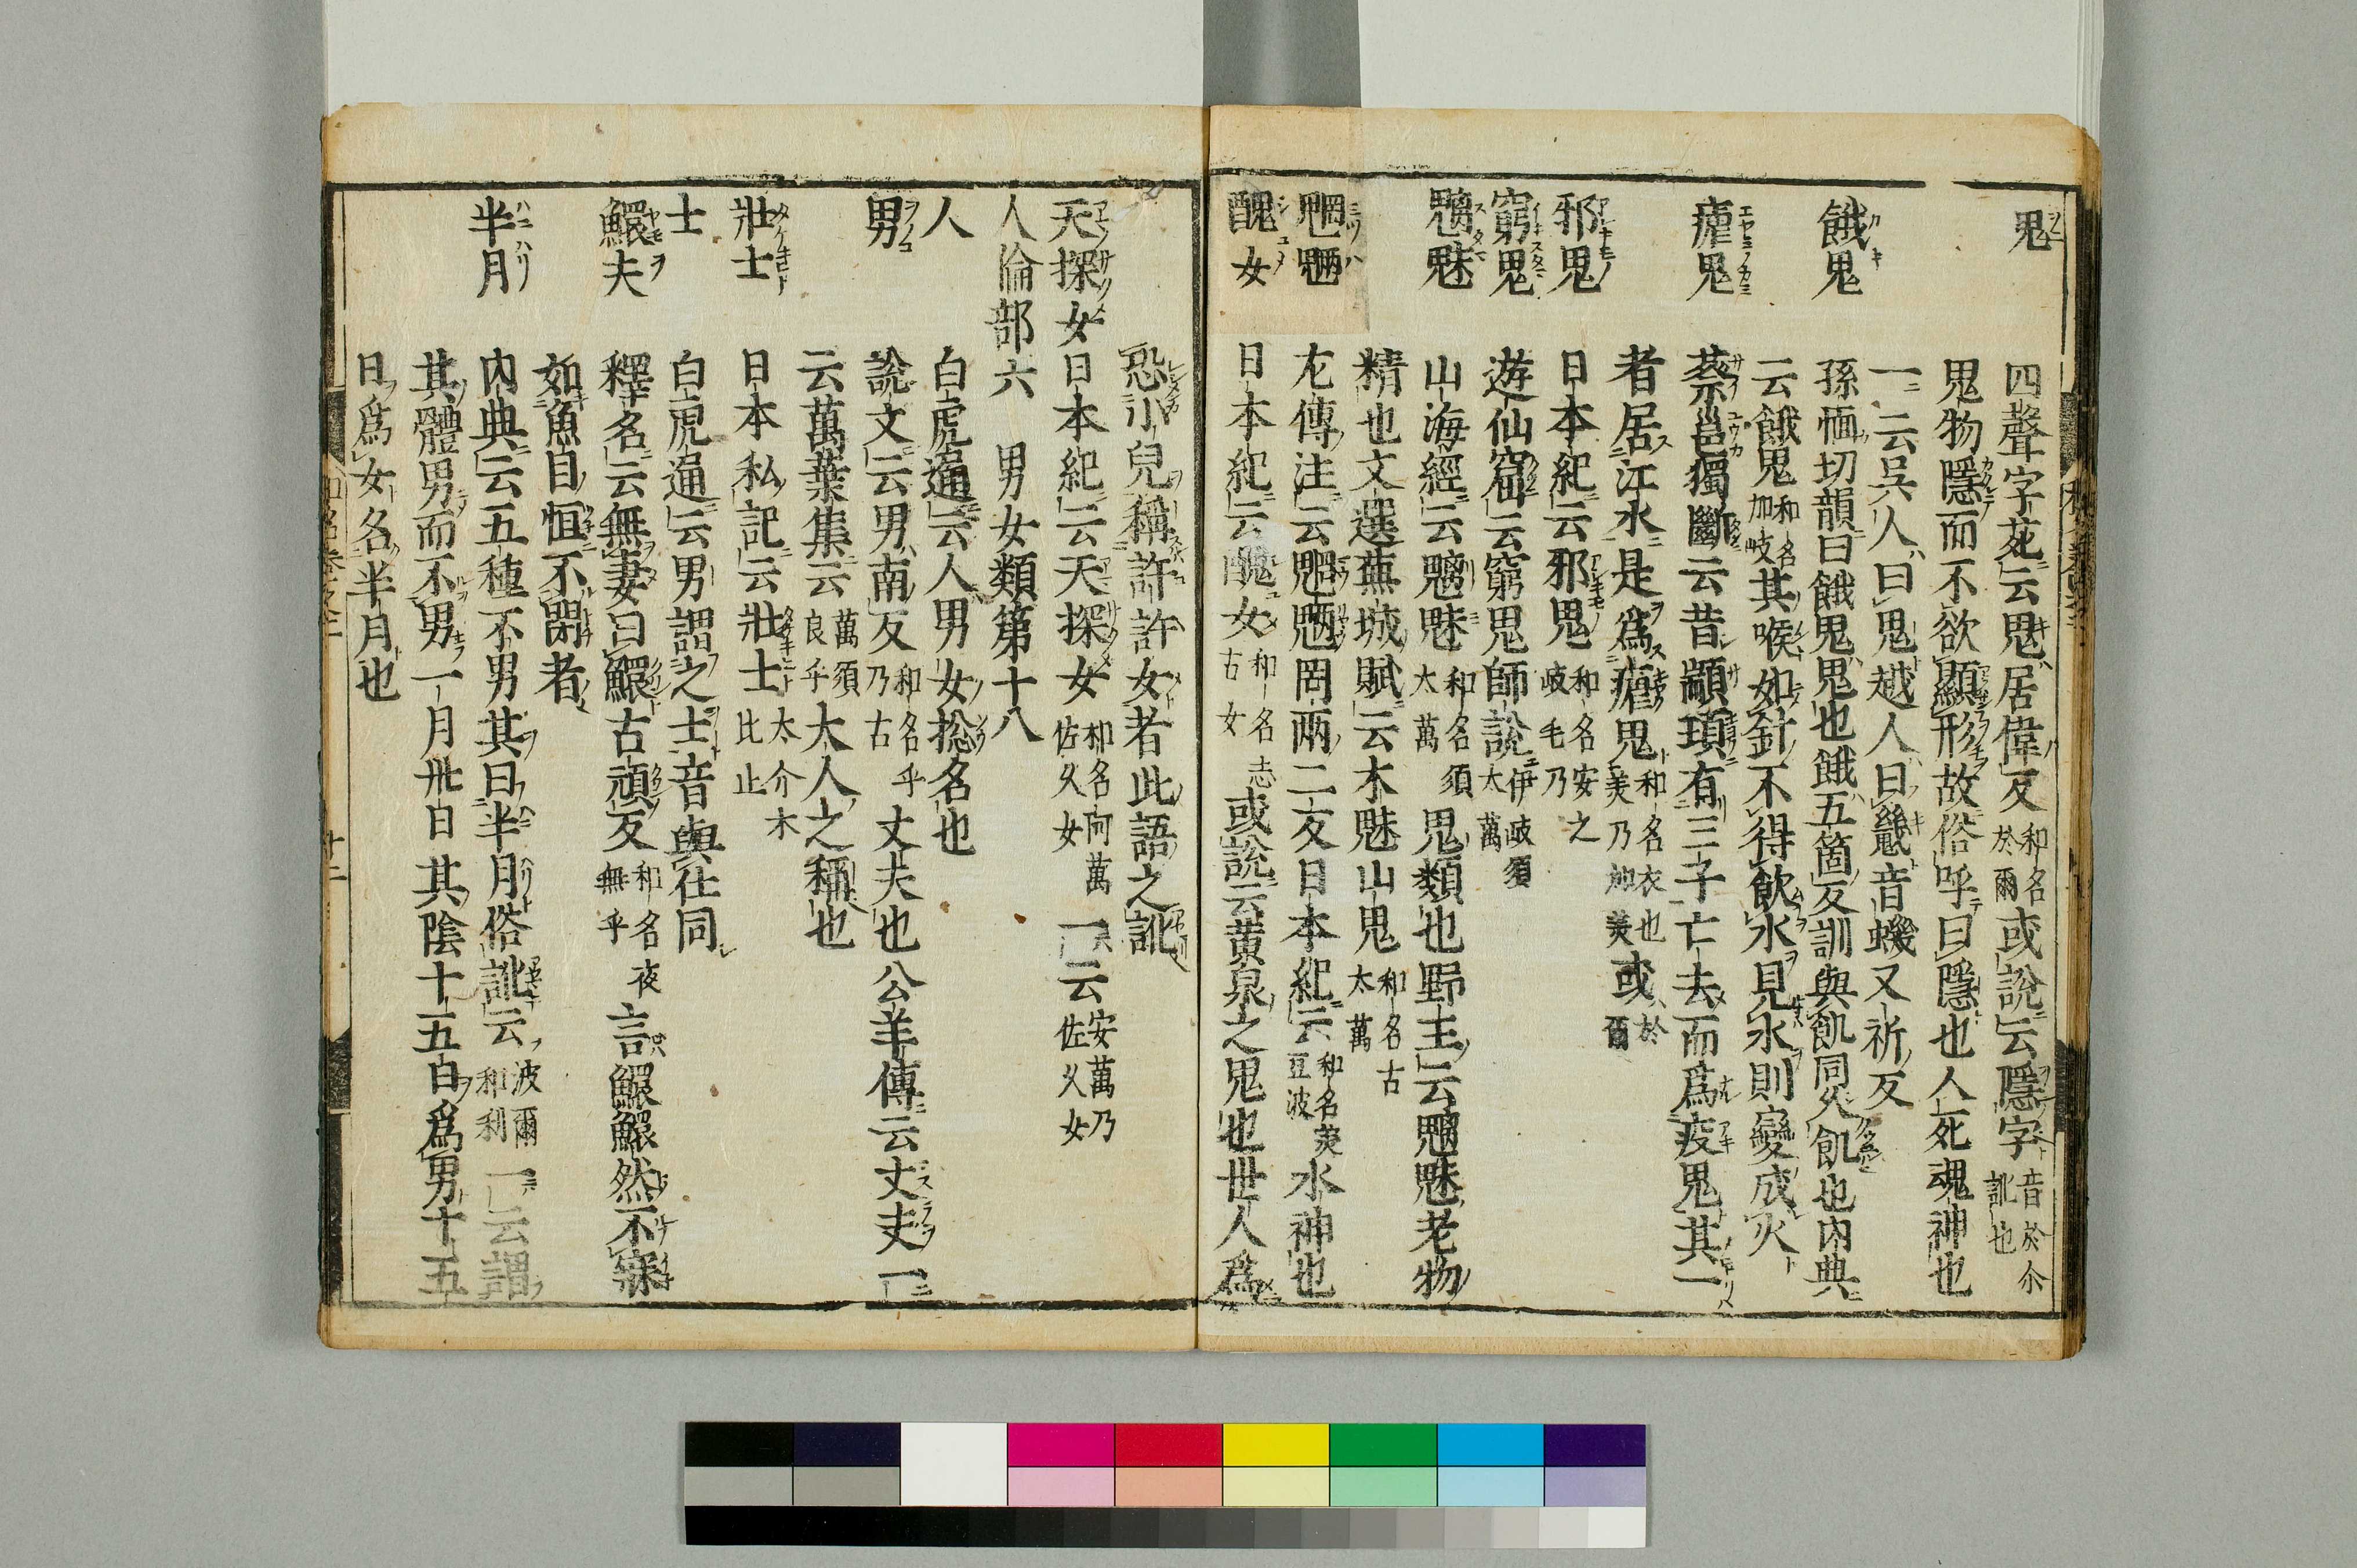 鬼 四聲字苑云鬼居偉反和名於爾或說云隱字音於尒訛也
鬼物隱而不欲顯形故俗呼曰隱也人死魂神也
一云吳人曰鬼越人曰䰧音蟣又祈反
餓鬼 孫愐切韻曰餓鬼鬼也餓五箇反訓與飢同久飢也內典
云餓鬼和名加岐其喉如針不得飲水見水則變成火
瘧鬼 蔡邕獨斷云昔顓頊有三子亡去而爲疫鬼其一
者居江水是爲瘧鬼和名衣也美乃加美或於爾
邪鬼 日本紀云邪鬼和名安之岐毛乃
窮鬼 遊仙窟云窮鬼師說伊岐須太萬
魑魅 山海經云魑魅和名須太萬鬼類也野王云魑魅老物
精也文選蕪城賦云木魅山鬼和名古太萬
魍魎 尤傳注云魍魎罔兩二反日本紀云和名美豆波水神也
醜女 日本紀云醜女和名志古女或說云黃泉之鬼也世人爲
恐小兒稱許許女者此語之訛
天探女 日本紀云天探女和名阿萬佐久女一云安萬乃佐久女
人倫部六 男女類第十八
人 白虎通云人男女惣名也
男 說文云男南反和名乎乃古丈夫也公羊傳云丈夫一
云萬葉集云萬須良乎大人之稱也
壯士 日本私記云壯士太介木比止
士 白虎通云男謂之士音與仕同
鰥夫 釋名云無妻曰鰥古頑反和名夜無乎言鰥鰥然不寐
如魚目恒不閉者
半月 內典云五種不男其曰半月俗訛云波爾和利一云謂
其體男而不男一月卅日其陰十五日爲男十五
日爲女名半月也